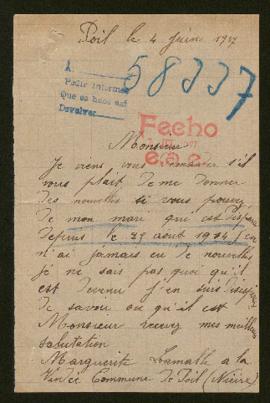 Poil le 4 juin 1917
A.
Pedir informes
Que se hace así
Devolver
58337
Fecho
Monsieur
Je viens vous s'il
vous plait de me donner
des nouvelles si vous pouvez
de mon mari qui est disparu
depuis le 29 août 1914 j'en
n'ai jamais eu de nouvelles
je ne sais pas quoi qu'il
est devenu j'en suis
de savoir ou qu'il est
Monsieur recevez mes meilleures
salutation
Marguerite a la
Commune de Poil (Nièvre)